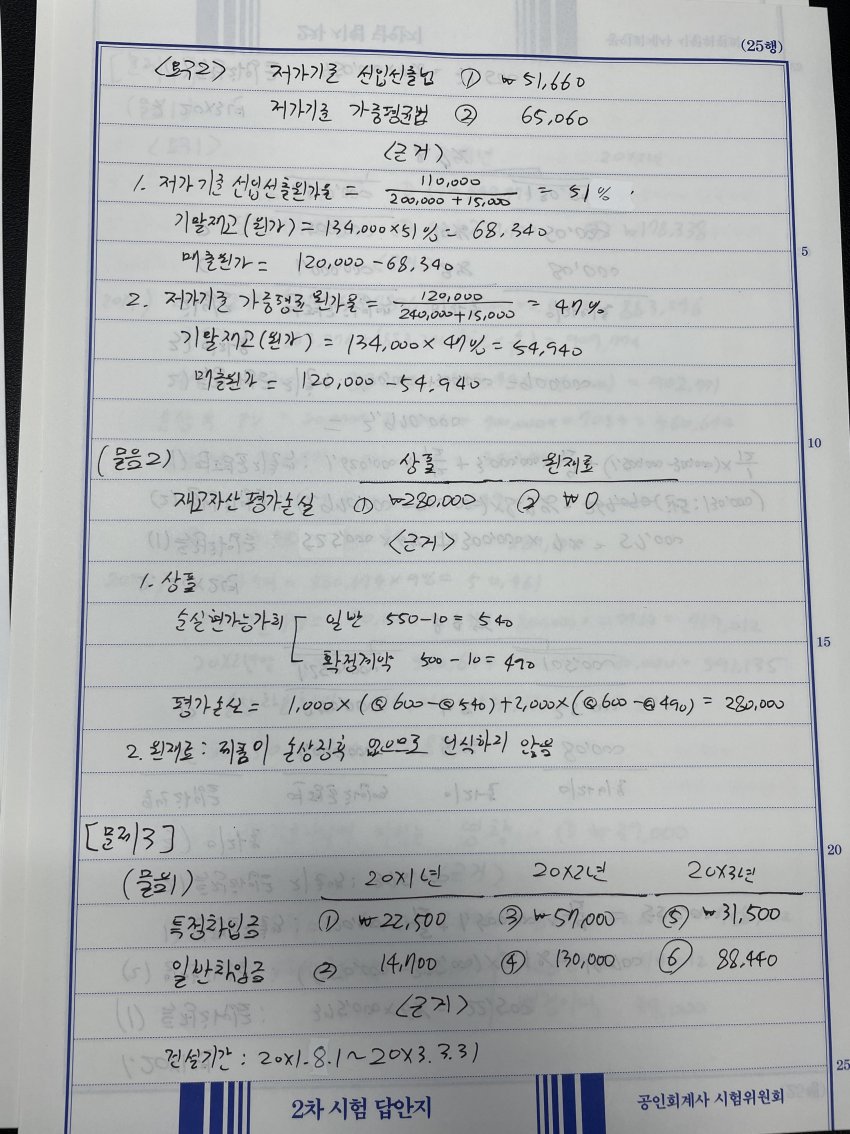 (25행)
<요구2> 저가기준 선입선출법 ① ₩51,660
저가기준 가중평균법 ② 65,060
<근거>
1. 저가기준 선입선출원가율 = 110,000 / 200,000 + 15,000 = 51%
기말재고(원가) = 134,000×51% = 68,340
5
매출원가 = 120,000 - 68,340
2. 저가기준 가중평균 원가율 = 120,000 / 240,000+15,000 = 47%
기말재고(원가) = 134,000 × 47% = 54,940
매출원가 = 120,000 - 54,940
10
(물음2) 상품 원재료
재고자산 평가손실 ① ₩280,000 ② ₩0
<근거>
1. 상품
순실현가능가치 일반 550-10 = 540
15
확정계약 500 - 10 = 490
평가손실 = 1,000×(@600-@540)+2,000×(@600-@490) = 280,000
2. 원재료: 제품이 손상징후 없으므로 인식하지 않음
[문제3]
20
(물음1) 20X1년 20X2년 20X3년
특정차입금 ① ₩22,500 ③ ₩57,000 ⑤ ₩31,500
일반차입금 ② 14,700 ④ 130,000 ⑥ 88,440
<근거>
건설기간: 20X1.8.1~20X3.3.31
25
2차 시험 답안지
공인회계사 시험위원회